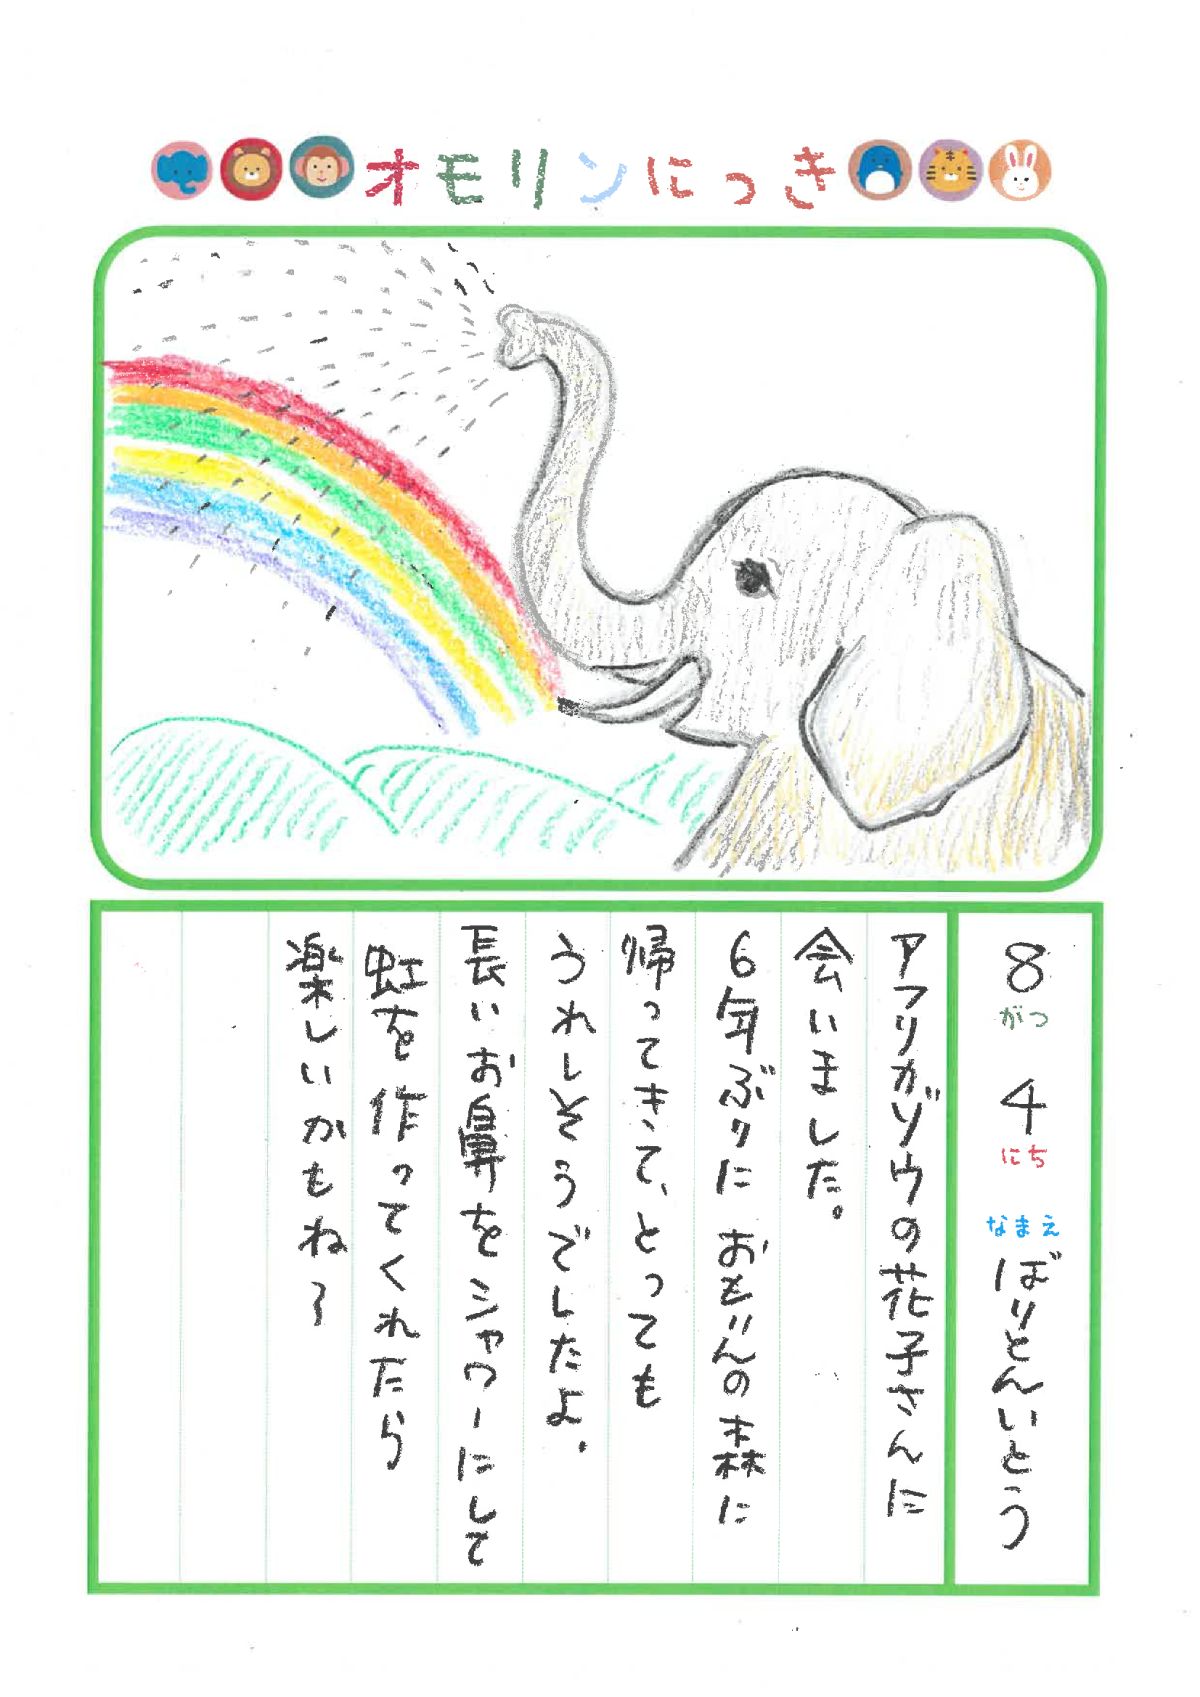 オモリンにっき
8がつ 4にち なまえ ぼりとんいとう
アフリカゾウの花子さんに
会いました。
6年ぶりに おもりんの森に
帰ってきて、とっても
うれしそうでしたよ。
長いお鼻をシャワーにして
虹を作ってくれたら
楽しいかもね〜